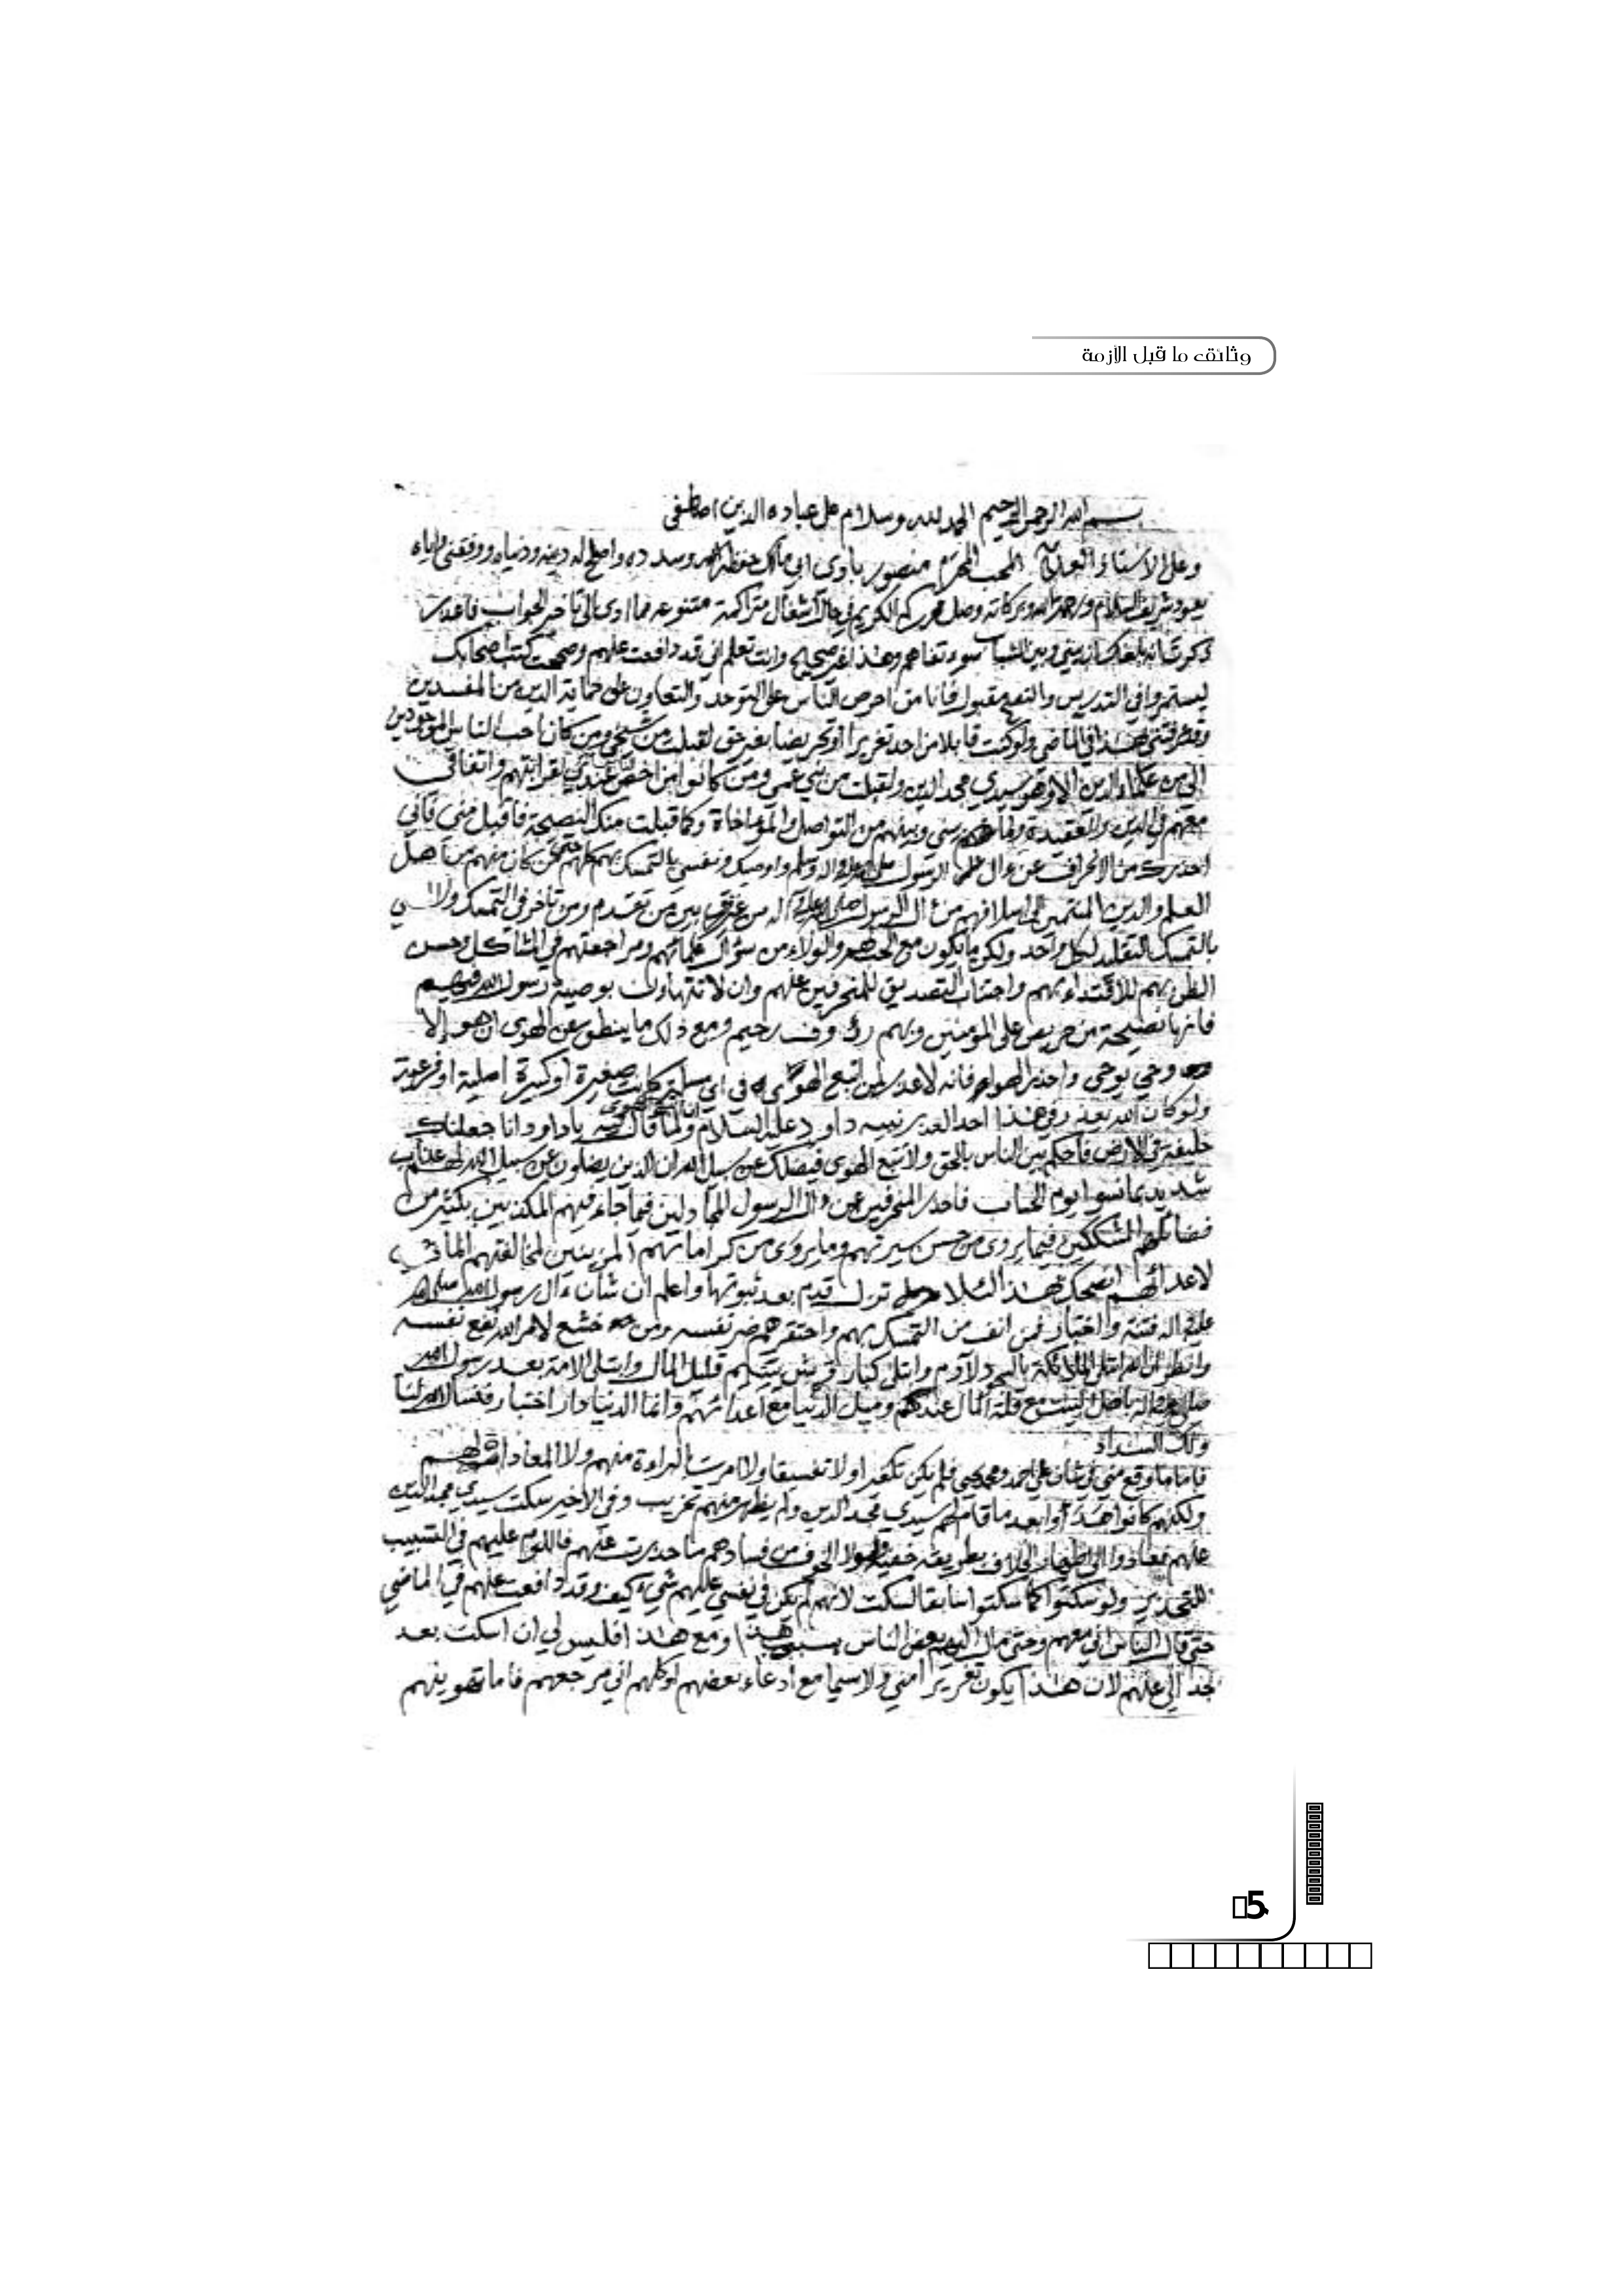 وثائق ما قبل الأزمة
بسم الله الرحمن الرحيم الحمد لله وسلام على عباده الذين اصطفى
وعلى الاستاذ المحب المحترم منصور باوي ابي مالك حفظه الله وسدده واصلح له دينه ودنياه ووفقني واياه
يعود شريف السلام ورحمة الله وبركاته وصل محرركم الكريم في حال اشغال متراكمة متنوعه مما ادى الى تاخر الجواب فاعذر
ذكرت انه بلغك ان بيني وبين الشباب سوء تفاهم وهذا غير صحيح وانت تعلم اني قد دافعت عنهم وصححت كتب اصحابك
ليستمروا في التدريس والنفع مقبول فانا من احرص الناس على التوحد والتعاون على حماية الدين من المفسدين
وقد عرفتني بهذا في الماضي ولو كنت قابلا من احد تغريرا او تحريضا بغير حق لقبلت من شيخي ومن كان احب الناس الموجودين
الي من علماء الدين الا وهو سيدي مجد الدين ولقبلت من بني عمي ومن كانوا من اخص الناس عندي لقرابتهم واتفاقي
معهم في الدين والعقيدة ولما بيني وبينهم من التواصل والمؤاخاة وكما قبلت منك النصيحة فاقبل مني فاني
احذرك من الانحراف عن ءال الرسول صلى الله عليه واله وسلم واوصيك ونفسي بالتمسك بهم كلهم ممن كان منهم من اهل
العلم والدين المنتمين الى اسلافهم من ءال الرسول صلى الله عليه واله من غير فرق بين من تقدم ومن تاخر في التمسك ولا
بالتمسك التقليد لكل واحد ولكن ما يكون مع الحب والولاء من سؤال علمائهم ومراجعتهم في المشاكل وحسن
الظن بهم للاقتداء بهم واجتناب التصديق للمنحرفين عنهم وان لا تتهاون بوصية رسول الله فيهم
فانها نصيحة من حريص على المؤمنين وبهم رؤوف رحيم ومع ذلك ما ينطق عن الهوى ان هو إلا
وحي يوحى واحذر الهوى فانه لا عذر لمن اتبع الهوى في اي مسئلة كانت صغيرة او كبيرة اصلية او فرعية
ولو كان الله يعذر في هذا احدا لعذر نبيه داود عليه السلام ولما قال يا داود انا جعلناك
خليفة في الارض فاحكم بين الناس بالحق ولا تتبع الهوى فيضلك عن سبيل الله ان الذين يضلون عن سبيل الله لهم عذاب
شديد بما نسوا يوم الحساب فاحذر المنحرفين عن ءال الرسول المجادلين فيما جاء فيهم المكذبين بكثير من
فضائلهم المشككين فيما يروى من حسن سيرتهم وما يروى من كراماتهم المزينين لمخالفتهم
لاعدائهم انصحك بهذا لئلا تزل قدم بعد ثبوتها واعلم ان شان ءال رسول الله صلى الله
عليه واله فتنة واختبار فمن انف من التمسك بهم واحتقرهم ضر نفسه ومن خشع لامر الله نفع نفسه
وانظر ان الله ابتلى الملائكة بالسجود لآدم وابتلى كبار قريش بيتيم قليل المال وابتلى الامة بعد رسول الله
صلى الله عليه واله باهل البيت مع قلة المال عندهم وميل الدنيا مع اعدائهم وانما الدنيا دار اختبار فنسال الله لنا
ولك السداد
فاما ما وقع مني في شان علي احمد ومحمد يحيى فلم يكن تكفيرا ولا تفسيقا ولا امرت بالبراءة منهم ولا المعاداة لهم
ولكنهم كانوا هدأوا بعد ما قام لهم سيدي مجد الدين ولم يظهر منهم تخريب وفي الاخير سكت سيدي مجد الدين
عنهم فعادوا الى اظهار الخلاف بطريقة خفية ولولا الخوف من فسادهم ما حذرت عنهم فاللوم عليهم في التسبيب
للتحذير ولو سكتوا كما سكتوا سابقا لسكت لانهم لم يكن في نفسي عليهم شيء كيف وقد دافعت عنهم في الماضي
حتى قال الناس اني معهم وحتى مال اليهم بعض الناس بسبب هذا ومع هذا افليس لي ان اسكت بعد
لان هذا يكون تغريرا مني ولا سيما مع ادعاء بعضهم او كلهم اني مرجعهم فاما تهوينهم
5